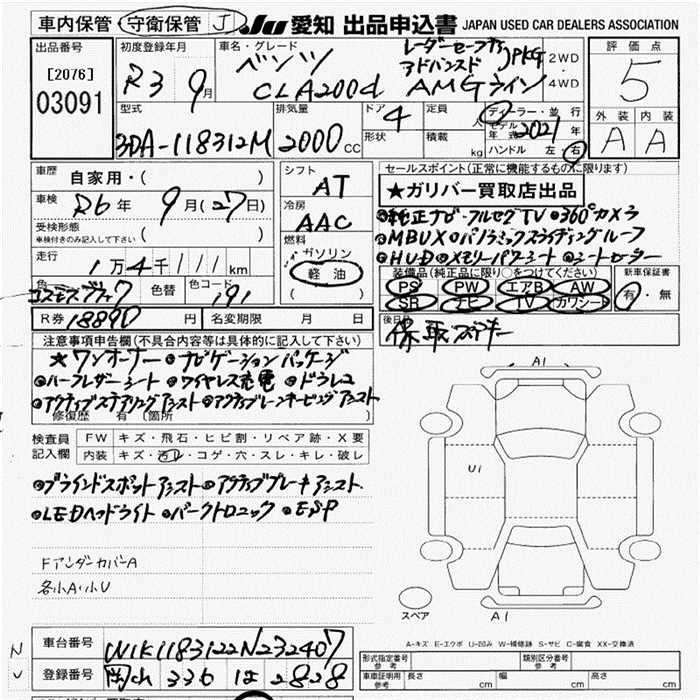 車内保管・守衛保管 J JU 愛知 出品申込書 JAPAN USED CAR DEALERS ASSOCIATION
出品番号 [2076] 03091
初度登録年月 R3 9月
車名・グレード ベンツ レーダーセーフティ PKG
アドバンスド
CLA200d AMGライン
2WD・4WD
評価点 5
外装 A 内装 A
型式 3DA-118312M
排気量 2000 CC
ドア 4 形状
定員 人 積載 kg
ディーラー・並行
モデル年式 2021年
ハンドル 左・右
車歴 自家用・( )
車検 R6年 9月(27日)
受検形態 ( )
車検付きのみ記入して下さい
走行 1万4千111km
色 コスモスブラック 色替 色コード 191
シフト AT
冷房 AAC
燃料 ガソリン 軽油 ( )
R券 18890円 名変期限 月 日
セールスポイント(正常に機能するものに限ります)
★ガリバー買取店出品
●純正ナビ・フルセグTV ●360°カメラ
●MBUX ●パノラミックスライディングルーフ
●HUD ●メモリーパワーシート ●シートヒーター
装備品(純正品に限り○をつけてください)
PS PW エアB AW
SR ナビ TV カワシート
新車保証書 有・無
後日
保 取 スペアキー
注意事項申告欄(不具合内容等は具体的に記入して下さい)
★ワンオーナー ●ナビゲーションパッケージ
●ハーフレザーシート ●ワイヤレス充電 ●ドラレコ
●アクティブステアリングアシスト ●アクティブレーンキーピングアシスト
修復歴 有 (箇所 )
検査員記入欄
FW キズ・飛石・ヒビ割・リペア跡・X要
内装 キズ・汚レ・コゲ・穴・スレ・キレ・破レ
●ブラインドスポットアシスト ●アクティブブレーキアシスト
●LEDヘッドライト ●パークトロニック ●ESP
FアンダーカバーA
各小A小U
A1
U1
スペア
A1
A-キズ E-エクボ U-凹み W-補修跡 S-サビ C-腐食 XX-交換済
NU
車台番号 W1K1183122N232407
登録番号 岡山 336 は 2828
形式指定番号 参考 類別区分番号 参考
車庫証明用 参考 長さ cm 幅 cm 高さ cm